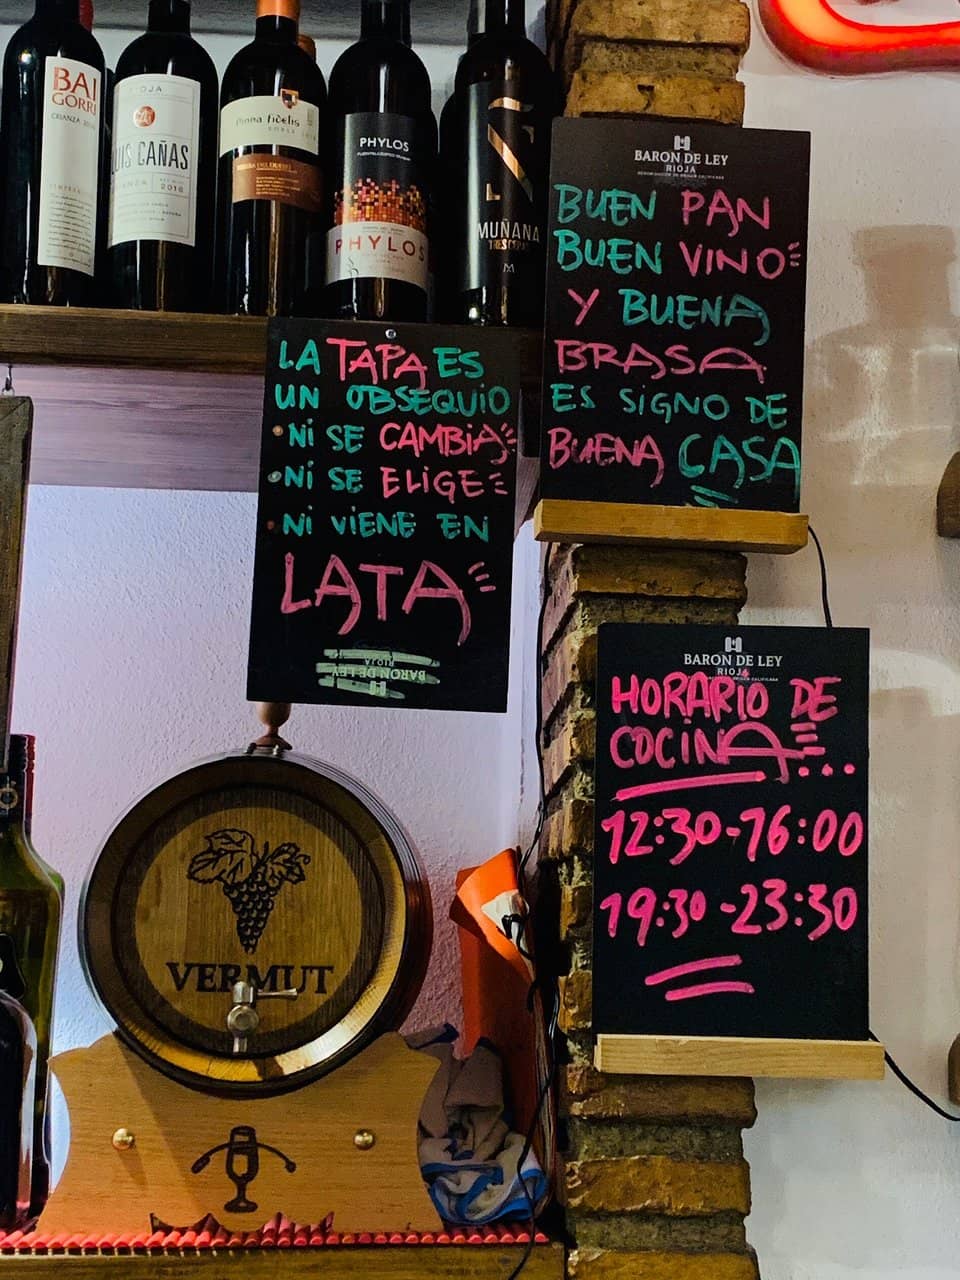 BAI
GORRI
CRIANZA
RIOJA
LUIS CAÑAS
CRIANZA
2016
Pinna fidelis
ROBLE
PHYLOS
PHYLOS
MUÑANA
TRES CEPAS
M
BARON DE LEY
RIOJA
DENOMINACIÓN DE ORIGEN CALIFICADA
BUEN PAN
BUEN VINO
Y BUENA
BRASA
ES SIGNO DE
BUENA CASA
LA TAPA ES
UN OBSEQUIO
• NI SE CAMBIA
• NI SE ELIGE
• NI VIENE EN
LATA
BARON DE LEY
RIOJA
BARON DE LEY
RIOJA
HORARIO DE
COCINA...
12:30-16:00
19:30-23:30
VERMUT